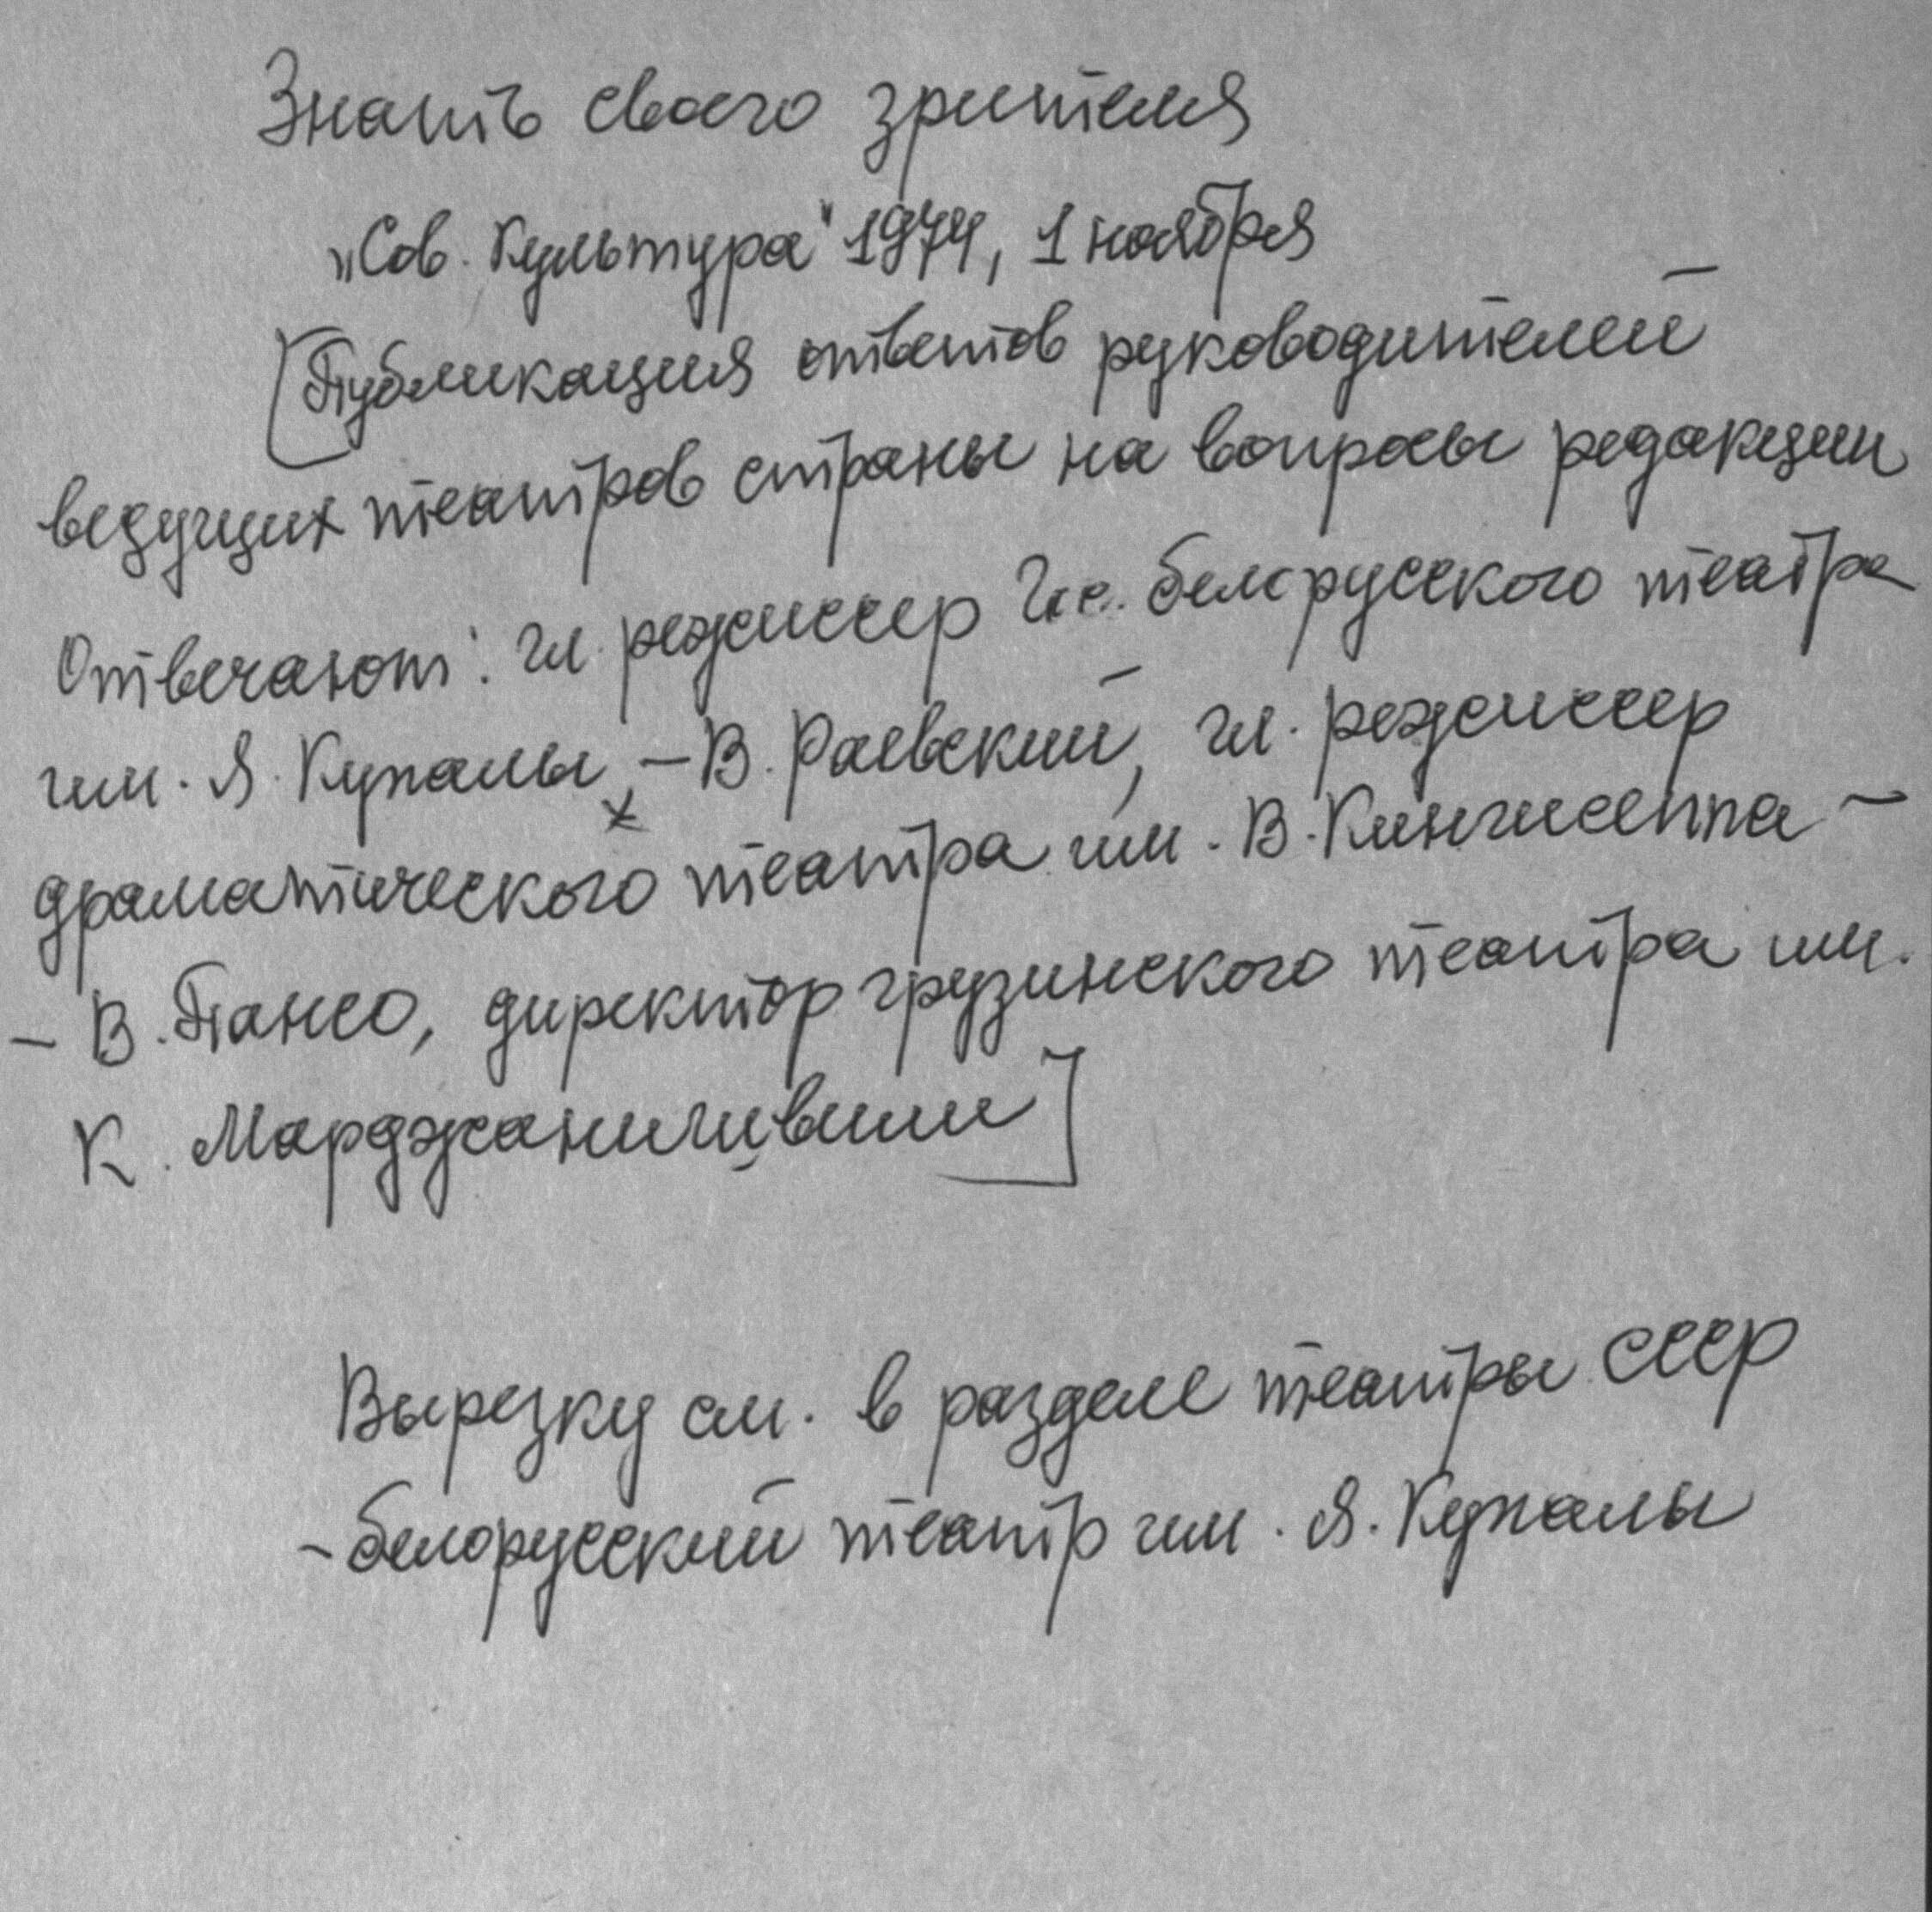 Знать своего зрителя
„Сов. Культура" 1974, 1 ноября
[Публикация ответов руководителей
ведущих театров страны на вопросы редакции
Отвечают: гл. режиссер Гос. белорусского театра
им. Я. Купалы, – В. Раевский, гл. режиссер
драматического театра им. В. Кингисеппа –
– В. Пансо, директор грузинского театра им.
К. Марджанишвили]
Вырезку см. в разделе театры СССР
– белорусский театр им. Я. Купалы